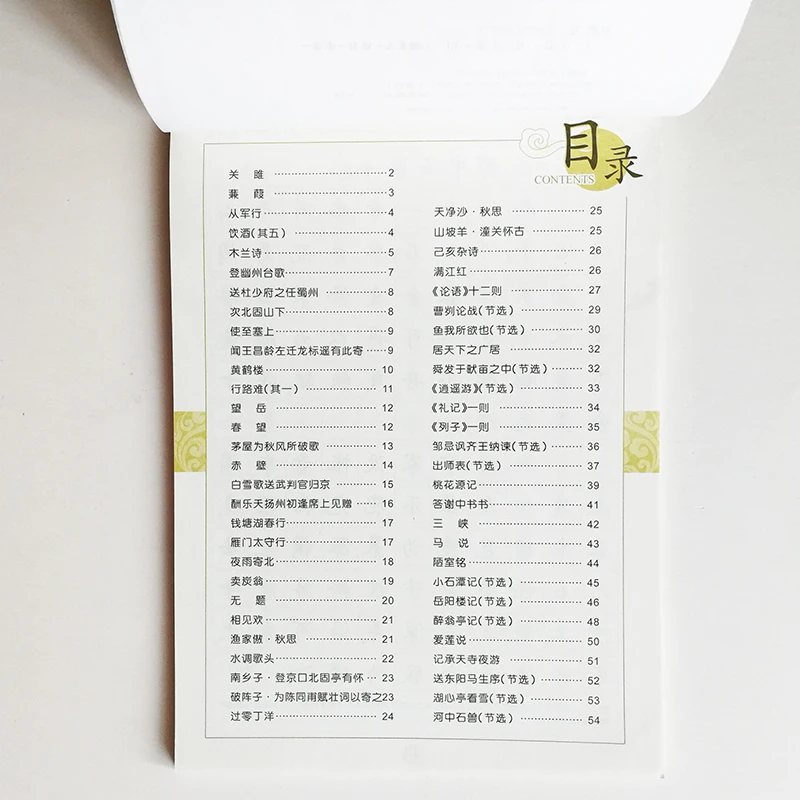 目录
CONTENTS
关 雎 2
蒹 葭 3
从军行 4
饮酒(其五) 4
木兰诗 5
登幽州台歌 7
送杜少府之任蜀州 8
次北固山下 8
使至塞上 9
闻王昌龄左迁龙标遥有此寄 9
黄鹤楼 10
行路难(其一) 11
望 岳 12
春 望 12
茅屋为秋风所破歌 13
赤 壁 14
白雪歌送武判官归京 15
酬乐天扬州初逢席上见赠 16
钱塘湖春行 17
雁门太守行 17
夜雨寄北 18
卖炭翁 19
无 题 20
相见欢 21
渔家傲·秋思 21
水调歌头 22
南乡子·登京口北固亭有怀 23
破阵子·为陈同甫赋壮词以寄之23
过零丁洋 24
天净沙·秋思 25
山坡羊·潼关怀古 25
己亥杂诗 26
满江红 26
《论语》十二则 27
曹刿论战(节选) 29
鱼我所欲也(节选) 30
居天下之广居 32
舜发于畎亩之中(节选) 32
《逍遥游》(节选) 33
《礼记》一则 34
《列子》一则 35
邹忌讽齐王纳谏(节选) 36
出师表(节选) 37
桃花源记 39
答谢中书书 41
三 峡 42
马 说 43
陋室铭 44
小石潭记(节选) 45
岳阳楼记(节选) 46
醉翁亭记(节选) 48
爱莲说 50
记承天寺夜游 51
送东阳马生序(节选) 52
湖心亭看雪(节选) 53
河中石兽(节选) 54